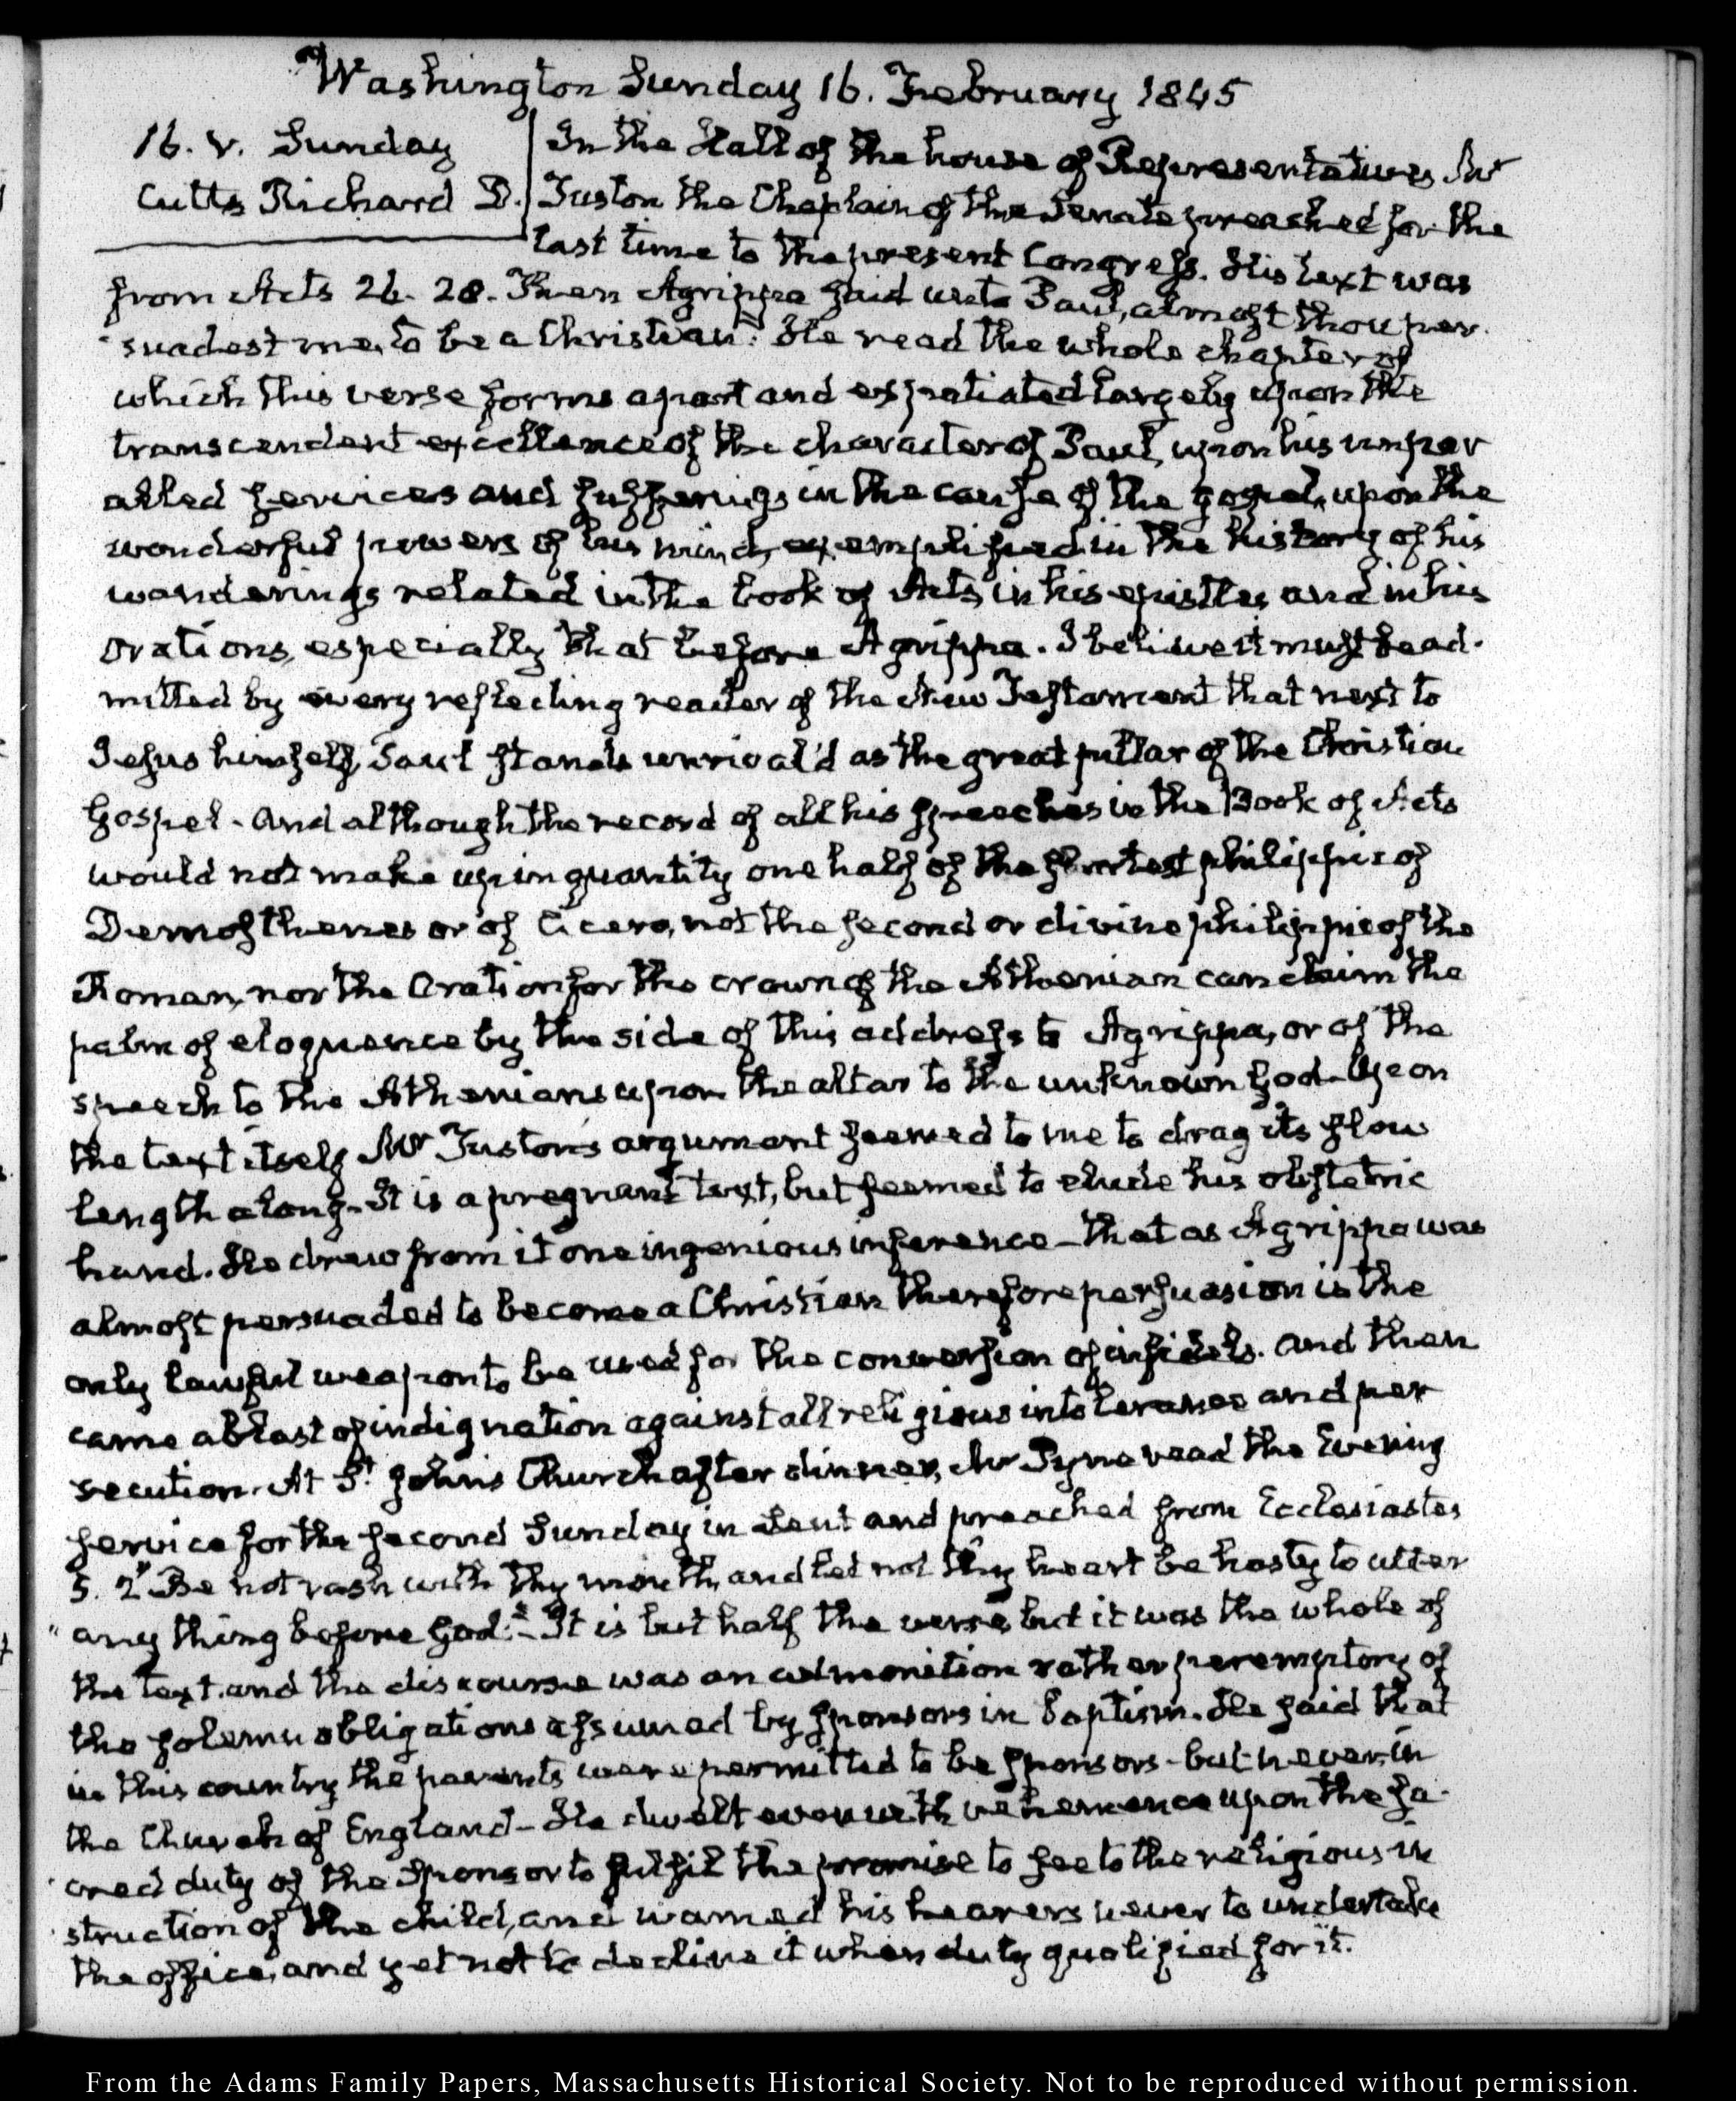 Washington Sunday 16. February 1845
16. V. Sunday
Cutts Richard D.
In the Hall of the house of Representatives Mr
Tuston the Chaplain of the Senate preached for the
last time to the present Congress. His text was
from Acts 26. 28. Then Agrippa said unto Paul, almost thou per-
suadest me, to be a Christian." He read the whole chapter of
which this verse forms a part and expatiated largely upon the
transcendent excellence of the character of Paul, upon his unpar
alled services and sufferings in the cause of the gospel, upon the
wonderful powers of his mind, exemplified in the history of his
wanderings related in the book of Acts, in his epistles and in his
orations, especially that before Agrippa. I believe it must be ad-
mitted by every reflecting reader of the New Testament that next to
Jesus himself, Paul stands unrival'd as the great pillar of the Christian
Gospel - And although the record of all his speeches in the Book of Acts
would not make up in quantity one half of the shortest philippic of
Demosthenes or of Cicero, not the second or divine philippic of the
Roman, nor the Oration for the crown of the Athenian can claim the
palm of eloquence by the side of this address to Agrippa, or of the
speech to the Athenians upon the altar to the unknown God - Upon
the text itself Mr Tuston's argument seemed to me to drag its slow
length along - It is a pregnant text, but seemed to elude his obstetric
hand. He drew from it one ingenious inference - that as Agrippa was
almost persuaded to become a Christian therefore persuasion is the
only lawful weapon to be used for the conversion of infidels. And then
came a blast of indignation against all religious intolerance and per
secution. At St. John's Church after dinner, Mr Pyne read the Evening
service for the second Sunday in Lent and preached from Ecclesiastes
5. 2 "Be not rash with thy mouth, and let not thy heart be hasty to utter
" any thing before God." - It is but half the verse, but it was the whole of
the text, and the discourse was an admonition rather peremptory of
the solemn obligations assumed by sponsors in Baptism. He said that
in this country the parents were permitted to be sponsors - but never in
the Church of England - He dwelt even with vehemence upon the sa-
cred duty of the Sponsor to fulfil the promise to see to the religious in
struction of the child, and warned his hearers never to undertake
the office, and yet not to decline it when duly qualified for it.
From the Adams Family Papers, Massachusetts Historical Society. Not to be reproduced without permission.